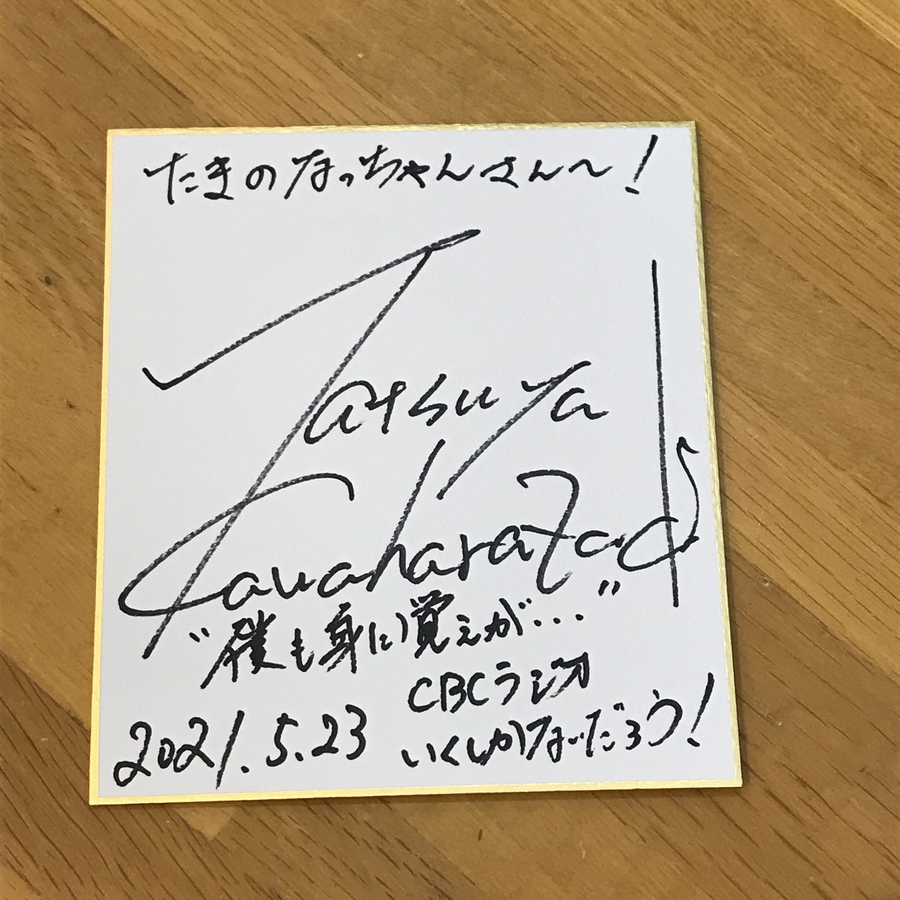 たまのなっちゃんさん〜!
Tatsuya
Kawaharazaki
"僕も身に覚えが..."
CBCラジオ
2021.5.23
いくしかないだろう!